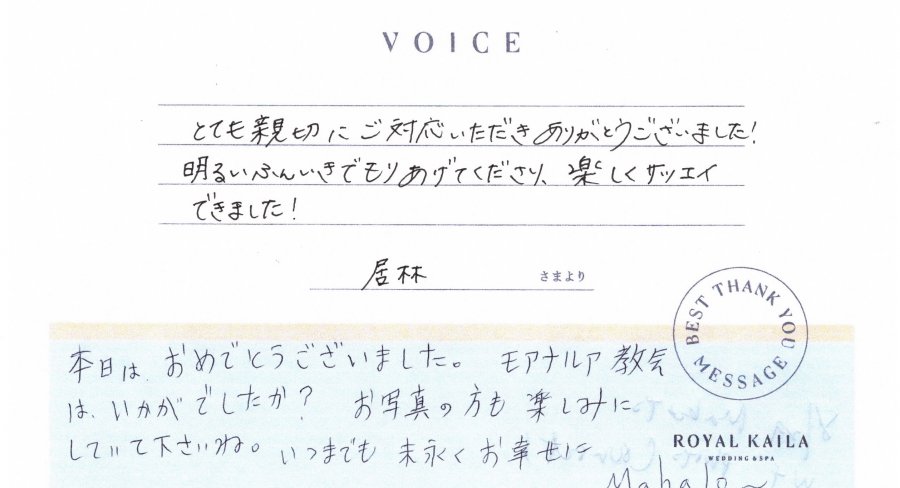 VOICE
とても親切にご対応いただきありがとうございました!
明るいふんいきでもりあげてくださり、楽しくサツエイ
できました!
居林 さまより
BEST THANK YOU MESSAGE
本日は、おめでとうございました。 モアナルア教会
は、いかがでしたか? お写真の方も楽しみに
していて下さいね。いつまでも 末永くお幸せに
ROYAL KAILA
WEDDING & SPA
Mahalo〜